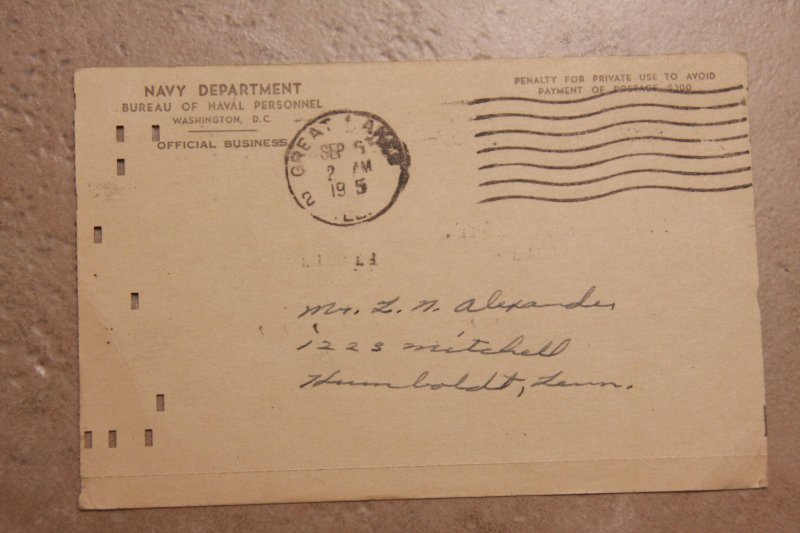 NAVY DEPARTMENT
BUREAU OF NAVAL PERSONNEL
WASHINGTON, D.C.
OFFICIAL BUSINESS
PENALTY FOR PRIVATE USE TO AVOID
PAYMENT OF POSTAGE $300
GREAT LAKES
SEP 5
2 AM
19 5
2 ILL.
Mr. L. N. Alexander
1223 Mitchell
Humboldt, Tenn.